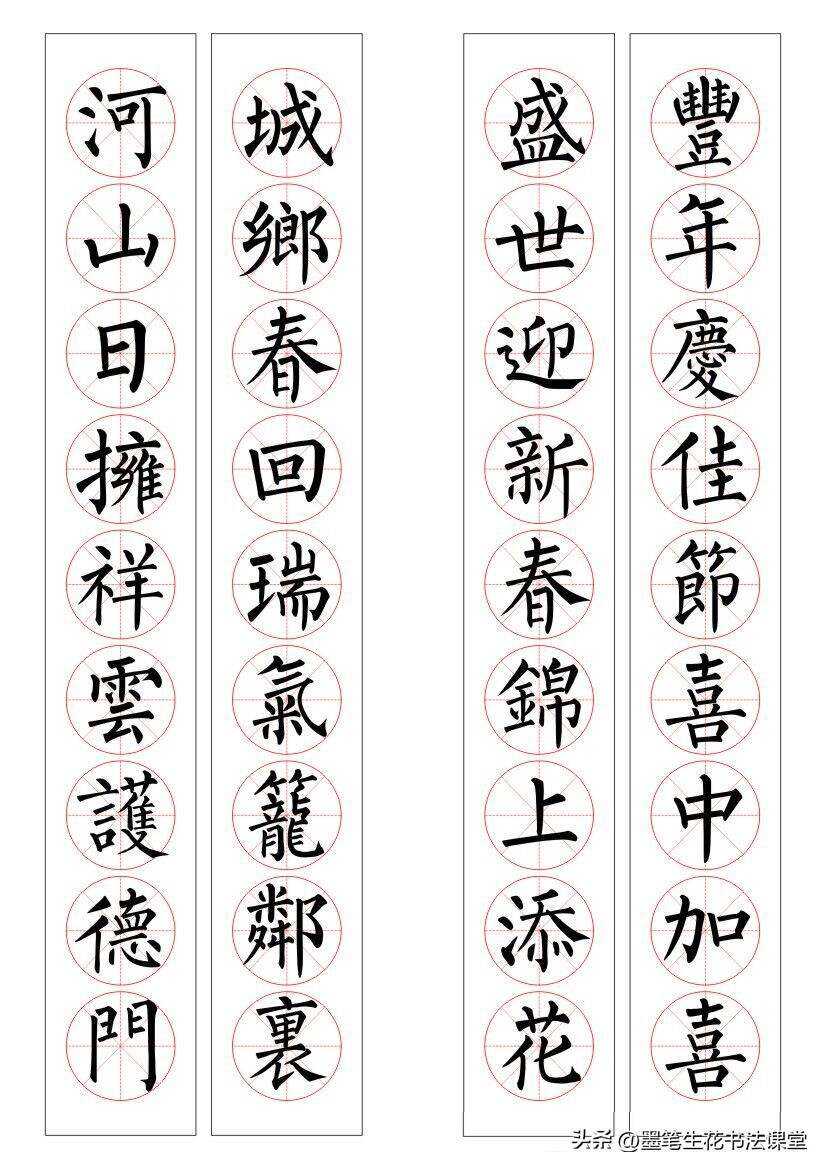 豐年慶佳節喜中加喜
盛世迎新春錦上添花
城鄉春回瑞氣籠鄰裏
河山日擁祥雲護德門
头条 @墨笔生花书法课堂